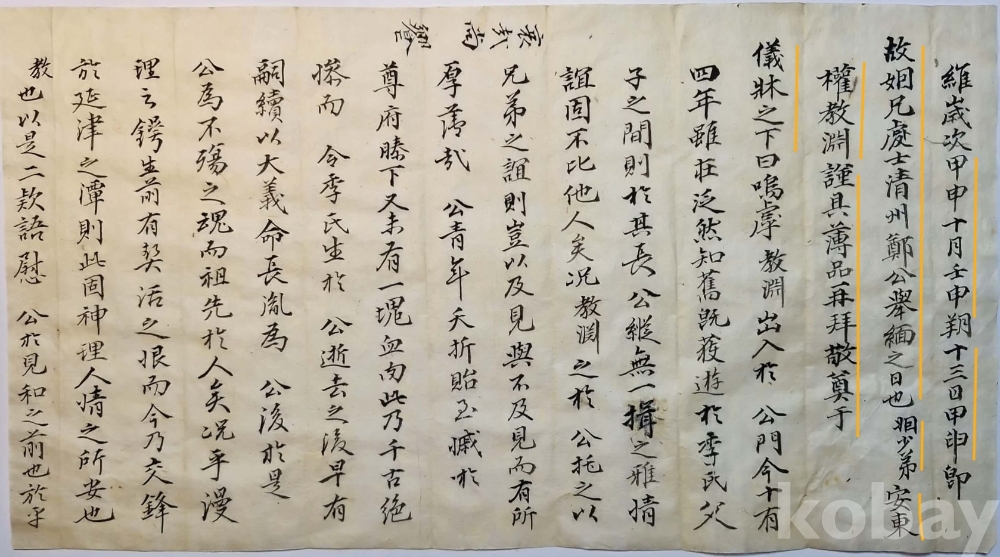 維歲次甲申十月壬申朔十三日甲申卽
故姻兄處士清州鄭公舉緬之日也 姻少弟安東
權教淵謹具薄品再拜敬奠于
儀牀之下曰嗚虖教淵出入於 公門今十有
四年雖在泛然知舊旣荷遊於季氏父
子之間則於其長公縱無一揖之雅情
誼固不比他人矣况教淵之於 公托之以
兄弟之誼則豈以及見與不及見而有所
厚薄哉 公青年夭折貽至慽於
尊府膝下又未有一塊血肉此乃千古絕
慘而 令季氏生於 公逝去之後早有
嗣續以大義命長胤爲 公後於是
公爲不殤之魂而祖先於人矣况乎漫
理云鍔生前有契活之恨而今乃交鋒
於延津之潭則此固神理人情之所安也
教也以是二欵語慰 公於見和之前也於乎
哀哉尚
饗
kobay